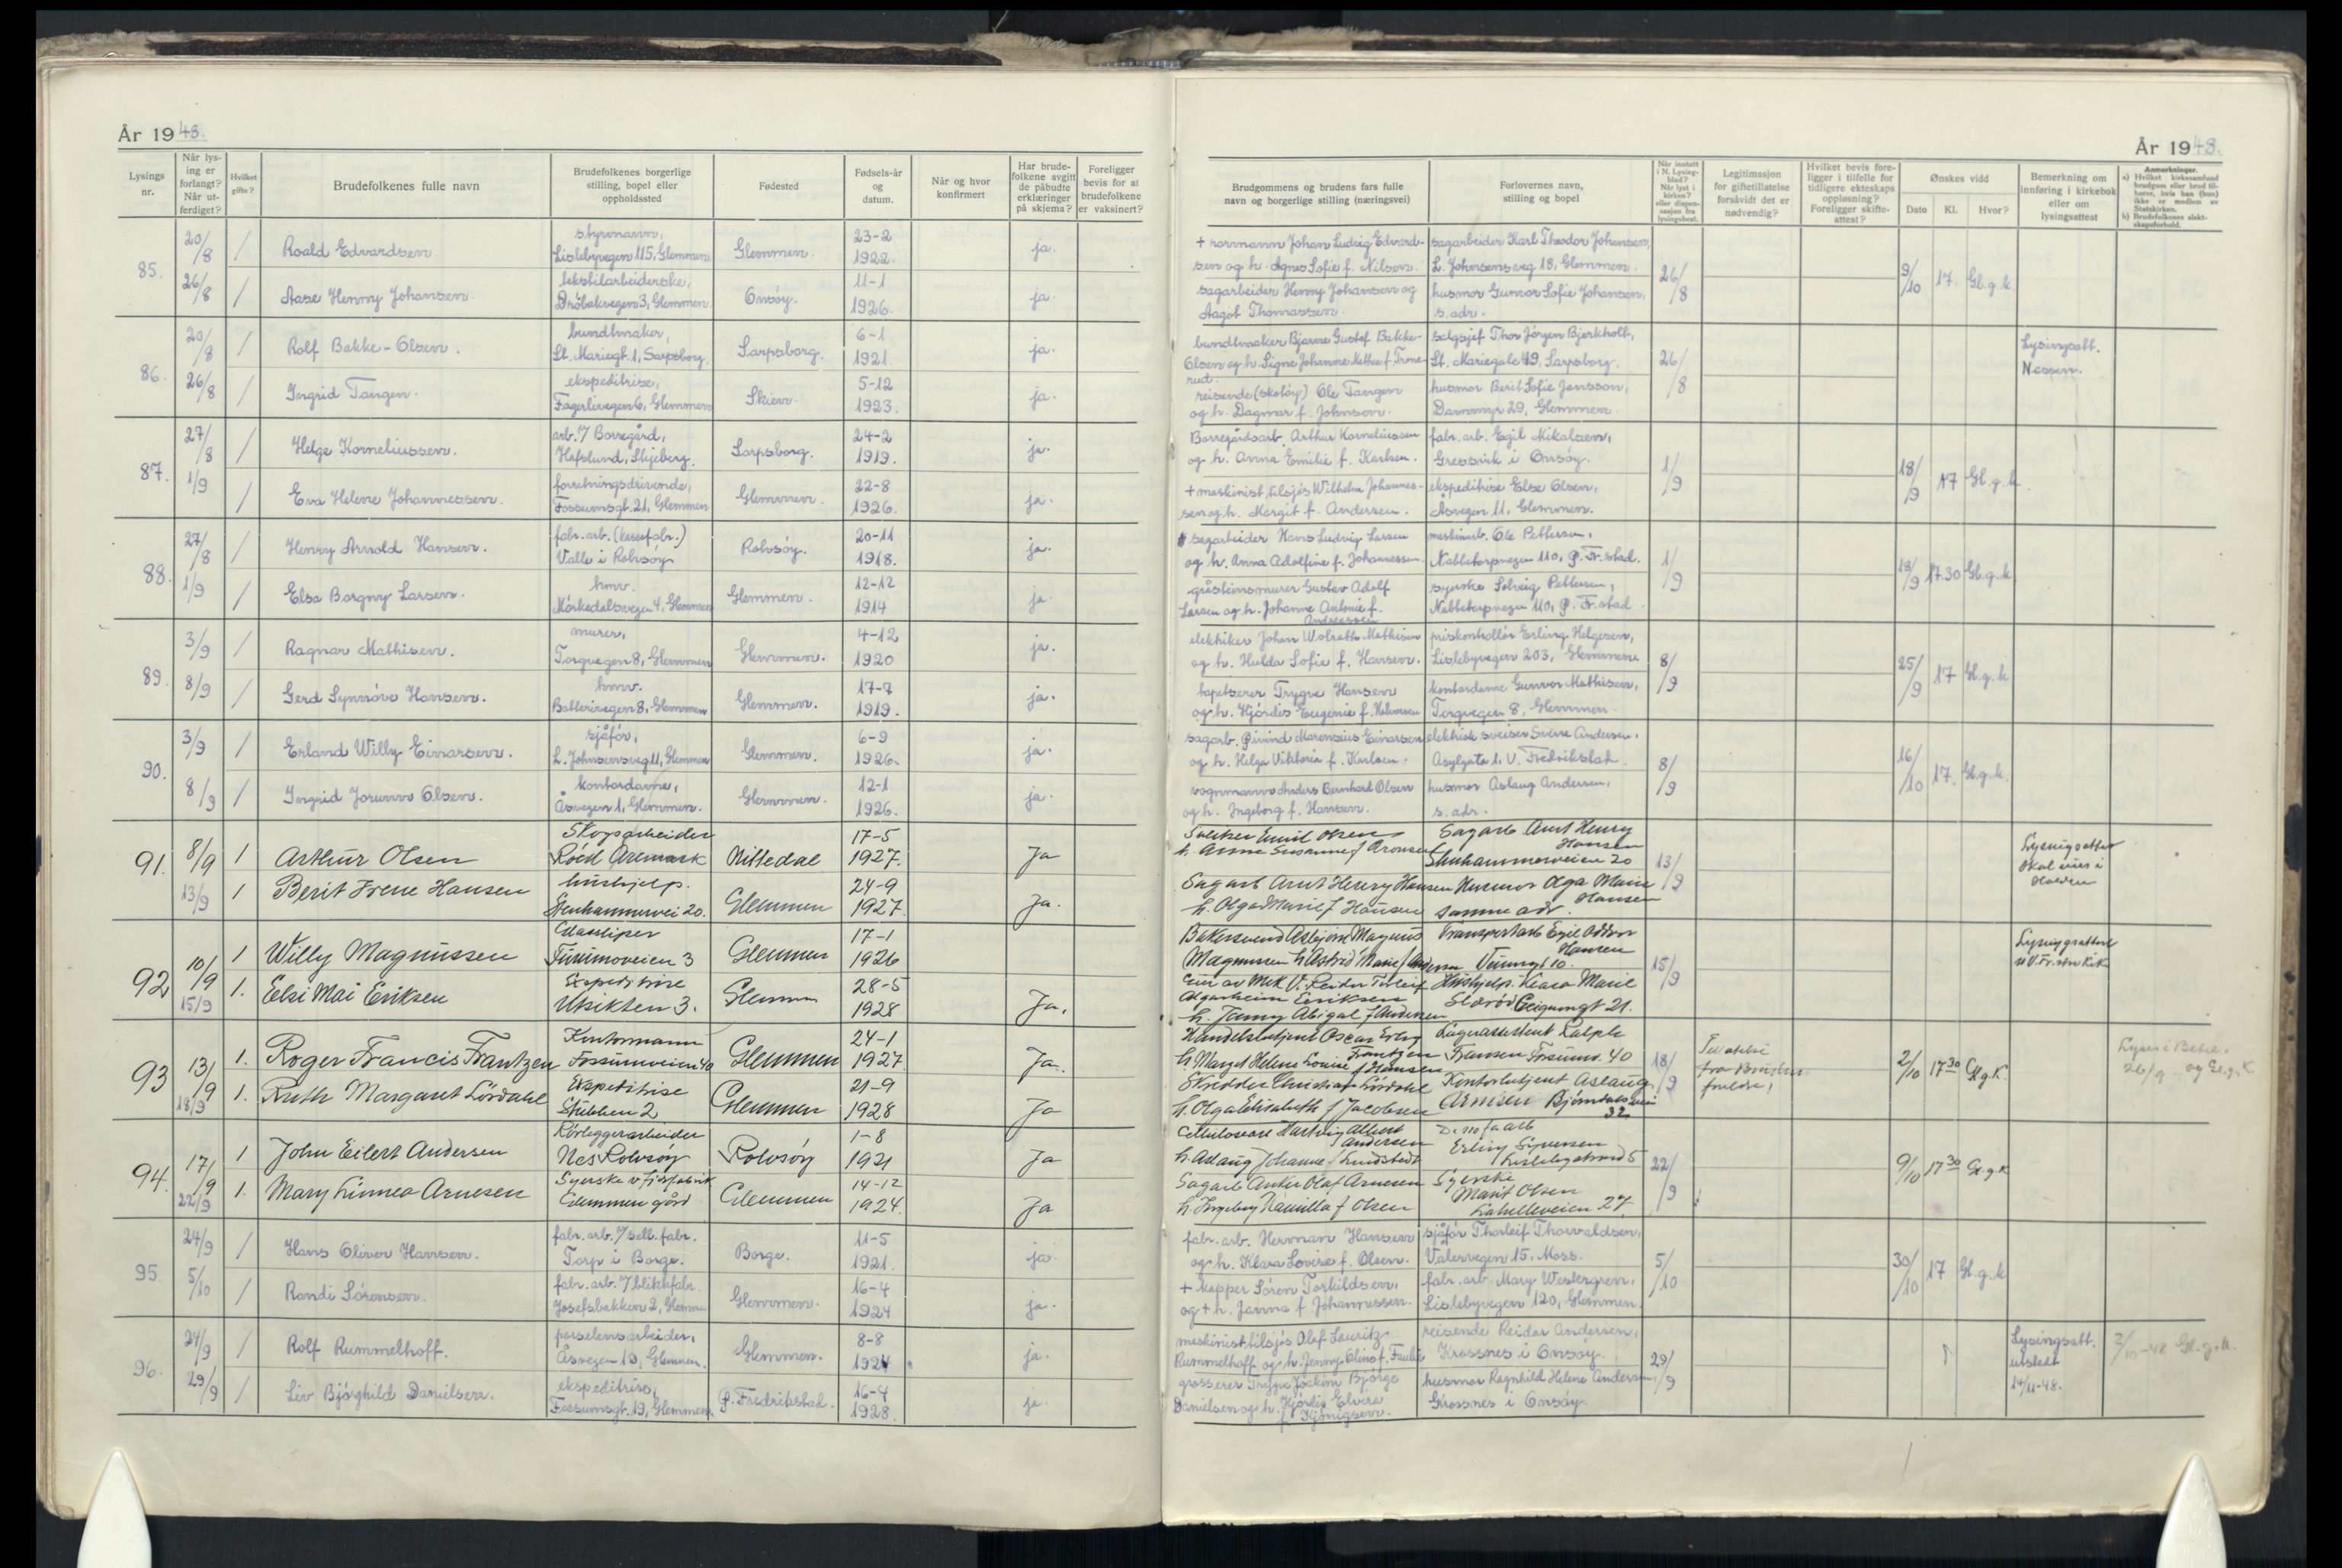 År 1948.
Lysings nr.
Når lysing er forlangt? Når utferdiget?
Hvilket gifte?
Brudefolkenes fulle navn
Brudefolkenes borgerlige stilling, bopel eller oppholdssted
Fødested
Fødsels-år og datum.
Når og hvor konfirmert
Har brudefolkene avgitt de påbudte erklæringer på skjema?
Foreligger bevis for at brudefolkene er vaksinert?
85.
20/8 / Roald Edvardsen. styrmann, Lislebyvegen 115, Glemmen. Glemmen. 23-2 1922. ja.
26/8 / Aase Henny Johansen. tekstilarbeiderske, Drøbakvegen 3, Glemmen. Onsøy. 11-1 1926. ja.
86.
20/8 / Rolf Bakke-Olsen. bundtmaker, St. Mariegt. 1, Sarpsborg. Sarpsborg. 6-1 1921. ja.
26/8 / Ingrid Tangen. ekspeditrise, Fagerlivegen 6, Glemmen Skien. 5-12 1923. ja.
87.
27/8 / Helge Korneliussen. arb. v/ Borregård, Hafslund, Skjeberg. Sarpsborg. 24-2 1919. ja.
1/9 / Eva Helene Johannessen. forretningsdrivende, Fossumsgt. 21, Glemmen Glemmen. 22-8 1926. ja.
88.
27/8 / Henry Arnold Hansen. fabr. arb. (kassefabr.) Valle i Rolvsøy Rolvsøy. 20-11 1918. ja.
1/9 / Elsa Borgny Larsen. hmv. Mørkedalsvegen 4, Glemmen Glemmen. 12-12 1914 ja.
89.
3/9 / Ragnar Mathisen. murer, Torgvegen 8, Glemmen Glemmen. 4-12 1920 ja.
8/9 / Gerd Synnøve Hansen. hmv. Batterivegen 8, Glemmen Glemmen. 17-7 1919. ja.
90.
3/9 / Erland Willy Einarsen. sjåfør, L. Johnsensveg 11, Glemmen Glemmen. 6-9 1926. ja.
8/9 / Ingrid Jorunn Olsen. kontordame, Åsvegen 1, Glemmen. Glemmen. 12-1 1926. ja.
91.
8/9 1 Arthur Olsen Skogsarbeider Røed Aremark Nittedal 17-5 1927. Ja
13/9 1 Berit Irene Hansen hushjelp. Stenhammervei 20. Glemmen 24-9 1927. Ja.
92
10/9 1 Willy Magnussen Glassliper Furumoveien 3 Glemmen 17-1 1926
15/9 1. Elsi Mai Eriksen Ekspeditrise Utsikten 3. Glemmen 28-5 1928 Ja.
93
13/9 1. Roger Francis Frantzen Kontormann Fossumveien 40 Glemmen 24-1 1927. Ja.
18/9 1. Ruth Margaret Lördahl Ekspeditrise Stubben 2 Glemmen 21-9 1928 Ja
94.
17/9 1 John Eilert Andersen Rörleggerarbeider Nes Rolvsøy Rolvsøy 1-8 1921 Ja
22/9 1. Mary Linnea Arnesen Syerske v Glemmen gård Glemmen 14-12 1924. Ja
95.
24/9 / Hans Oliver Hansen. fabr. arb. v/ sell. fabr. Torp i Borge. Borge. 11-5 1921. ja.
5/10 / Randi Sørensen. fabr. arb. v/ blikkfabr. Josefsbakken 2, Glemmen Glemmen. 16-4 1924 ja.
96.
24/9 / Rolf Rummelhoff. porselensarbeider, Åsvegen 13, Glemmen. Glemmen. 8-8 1924 ja.
29/9 / Liv Bjørghild Danielsen. ekspeditrise, Fossumsgt. 19, Glemmen. P. Fredrikstad. 16-4 1928. ja.
År 1948.
Brudgommens og brudens fars fulle navn og borgerlige stilling (næringsvei)
Forlovernes navn, stilling og bopel
Når inntatt i N. Lysingsblad? Når lyst i kirken? eller dispensasjon fra lysingsbest.
Legitimasjon for giftetillatelse forsåvidt det er nødvendig?
Hvilket bevis foreligger i tilfelle for tidligere ekteskaps oppløsning? Foreligger skifteattest?
Ønskes vidd
Dato
Kl.
Hvor?
Bemerkning om innføring i kirkebok eller om lysingsattest
Anmerkninger.
a) Hvilket kirkesamfund brudgom eller brud tilhører, hvis han (hun) ikke er medlem av Statskirken.
b) Brudefolkenes slektskapsforhold.
+ formann Johan Ludvig Edvardsen og h. Agnes Sofie f. Nilsen. sagarbeider Karl Theodor Johansen, L. Johnsensveg 18, Glemmen. 26/8 9/10 17. Gl. g. k.
sagarbeider Henny Johansen og Aagot Thomassen. husmor Gunvor Sofie Johansen, s. adr.
bundtmaker Bjarne Gustaf Bakke-Olsen og h. Signe Johanne Mathea f. salgsjef Thor Jörgen Bjerkholt, St. Mariegate 49, Sarpsborg. 26/8 Lysingsatt.
reisende (skotøy) Ole Tangen og h. Dagmar f. Johnson. husmor Berit Sofie Jansson, Dammyr 29, Glemmen.
Borregårdsarb. Arthur Korneliussen og h. Anna Emilie f. Karlsen. fabr. arb. Egil Nikolaisen, Gressvik i Onsøy. 1/9 18/9 17 Gl. g. k.
+ maskinist tilsjøs Wilhelm Johannessen og h. Margit f. Andersen. ekspeditrise Else Olsen, Åsvegen 11, Glemmen.
sagarbeider Hans Ludvig Larsen og h. Anna Adolfine f. Johannessen. maskinarb. Ole Pettersen, Nabbetorpvegen 110, P. Fr.stad. 1/9 18/9 17.30 Gl. g. k.
gråsteinsmurer Gustav Adolf Larsen og h. Johanne Antonie f. Andreassen syerske Solveig Pettersen, Nabbetorpvegen 110, P. Fr.stad.
elektriker Johan Wolrath Mathisen og h. Hulda Sofie f. Hansen. priskontrollör Erling Helgesen, Lislebyvegen 203, Glemmen. 8/9 25/9 17 Gl. g. k
tapetserer Trygve Hansen og h. Hjördis Eugenie f. Halvorsen kontordame Gunvor Mathisen, Torgvegen 8, Glemmen.
sagarb. Øivind Marensius Einarsen og h. Helga Viktoria f. Karlsen. elektrisk sveiser Sverre Andersen, Asylgata 1, V. Fredrikstad. 8/9 16/10 17. Gl. g. k.
vognmann Anders Bernhard Olsen og h. Ingeborg f. Hansen. husmor Aslaug Andersen, s. adr.
Emil Olsen h. Anna Susanne f Aronsen Sagarb Arnt Henry Hansen Stenhammerveien 20 13/9 Lysingsattest skal vies i Halden
Sagarb Arnt Henry Hansen h. Olga Marie f Hansen Husmor Olga Marie Hansen samme adr.
Bakersvend Asbjørn Magnus Magnussen h Astrid Marie f Andersen Transportarb Egil Oddvar Hansen 10. 15/9 Lysingsattest
Eier av Mek V. Reidar Eriksen h. Jenny Abigal f Andersen Hushjelp. Klara Marie 21.
Handelsbetjent Oscar Frantzen h Margit Helene Louise f Hansen Lagerassistent Ralph Fransen Fossumv. 40 18/9 fra 2/10 17 30 Gl g. K. 26/9 og Gl. g. K
Skredder Christian Lördahl h. Olga Elisabeth f Jacobsen Kontorbetjent Aslaug Arnesen 32
Cellulosearb Hartvig Albert Andersen h. Aslaug Johanne f Lundstedt Denofaarb Erling Syversen 5 22/9 9/10 17 30 Gl g K
Sagarb Anker Olaf Arnesen h. Ingeborg Kamilla f Olsen Syerske Marit Olsen 27.
fabr. arb. Herman Hansen og h. Klara Lovise f. Olsen. sjåfør Thorleif Thorvaldsen, Vålervegen 15, Moss. 5/10 30/10 17 Gl. g. k
+ kapper Sören Torkildsen, og + h. Janna f. Johannessen. fabr. arb. Mary Westergren, Lislebyvegen 120, Glemmen.
maskinist tilsjøs Olaf Lauritz Rummelhoff og h. Jenny Oline f. reisende Reidar Andersen, Krossnes i Onsøy. 29/9 Lysingsatt. utstedt 14/11-48. 2/10-48 Gl. g. k.
grosserer Trygve Joakim Bjørge Danielsen og h. Hjördis Elvira f. husmor Ragnhild Helene Andersen, Krossnes i Onsøy.